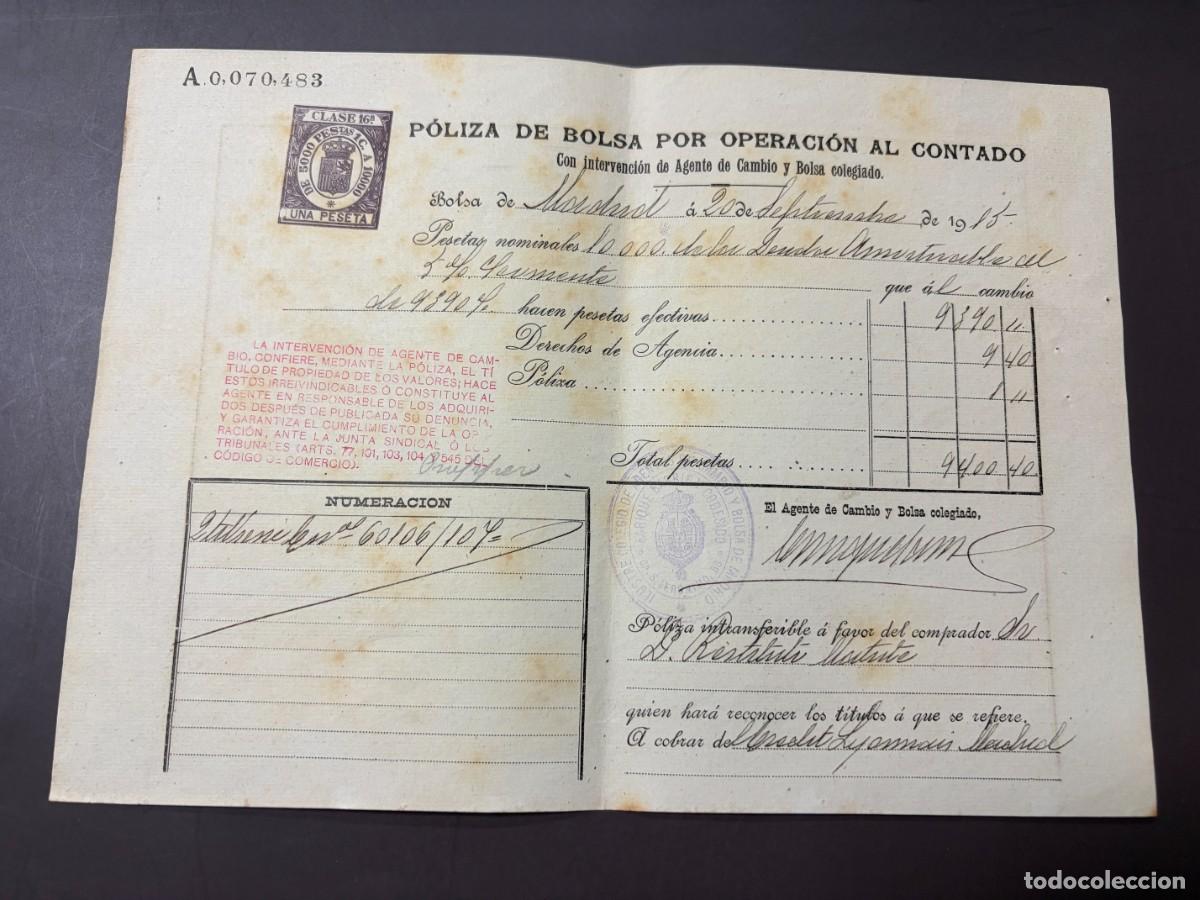 A.0,070,483
CLASE 16ª
DE 5000 PESTAS 1C. A 10000
UNA PESETA
PÓLIZA DE BOLSA POR OPERACIÓN AL CONTADO
Con intervención de Agente de Cambio y Bolsa colegiado.
Bolsa de Madrid á 20 de Septiembre de 1915-
Pesetas nominales 10.000. de la Deuda Amortizable al
5 %
que ál cambio
de 9390% hacen pesetas efectivas 9390 "
Derechos de Agencia 9 40
Póliza 1 "
Total pesetas 9400 40
LA INTERVENCIÓN DE AGENTE DE CAM-
BIO, CONFIERE, MEDIANTE LA PÓLIZA, EL TÍ
TULO DE PROPIEDAD DE LOS VALORES; HACE
ESTOS IRREIVINDICABLES Ó CONSTITUYE AL
AGENTE EN RESPONSABLE DE LOS ADQUIRI-
DOS DESPUÉS DE PUBLICADA SU DENUNCIA,
Y GARANTIZA EL CUMPLIMIENTO DE LA OP
RACIÓN, ANTE LA JUNTA SINDICAL Ó LOS
TRIBUNALES (ARTS. 77, 101, 103, 104 Y 545 DEL
CÓDIGO DE COMERCIO).
NUMERACION
60106/107=
El Agente de Cambio y Bolsa colegiado,
Póliza intransferible á favor del comprador Sr
D. Restituto Matute
quien hará reconocer los títulos á que se refiere.
A cobrar del Credit Lyonnais Madrid
todocoleccion